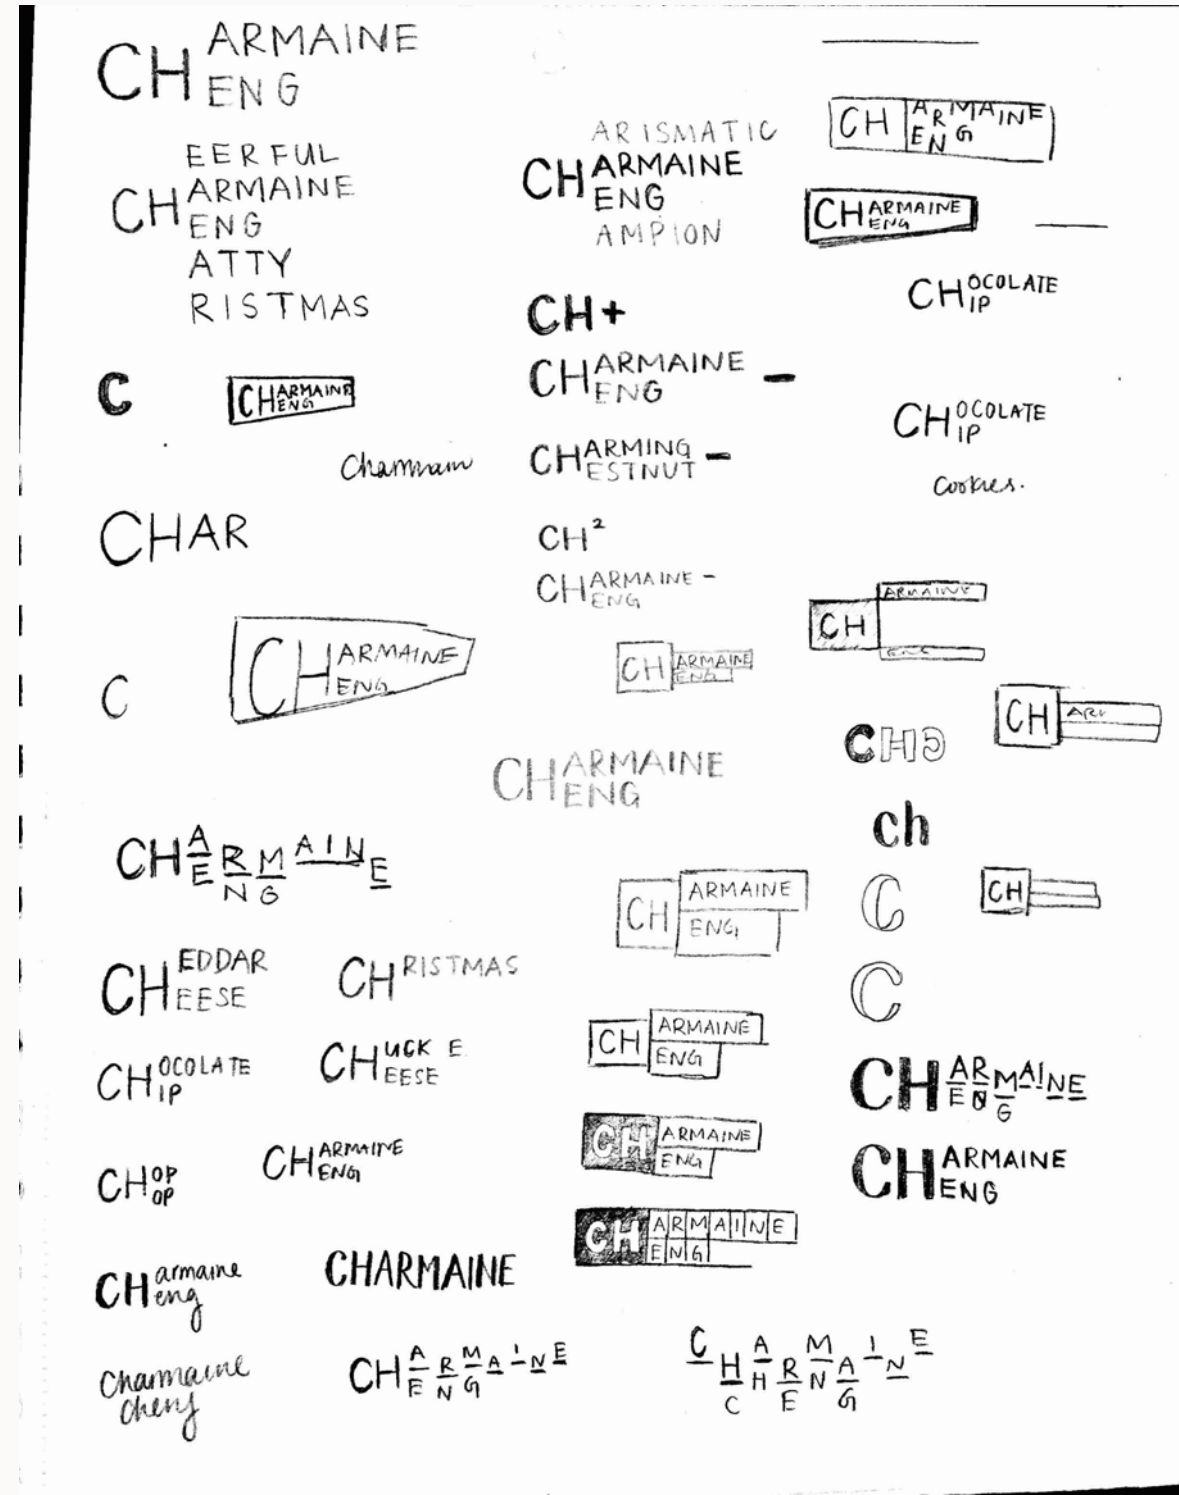 CH ARMAINE
ENG
EERFUL
CH ARMAINE
ENG
ATTY
RISTMAS
C
CHARMAINE
ENG
Chammain
CHAR
C
CHARMAINE
ENG
CHARMAINE
ENG
CHEDDAR
EESE
CHRISTMAS
CHOCOLATE
IP
CHUCK E
EESE
CHOP
OP
CHARMAINE
ENG
CHarmaine
eng
CHARMAINE
Charmaine
Cheng
CHARMAINE
ENG
ARISMATIC
CHARMAINE
ENG
AMPION
CH+
CHARMAINE -
ENG
CHARMING -
ESTNUT
CH²
CHARMAINE -
ENG
CHARMAINE
ENG
CHARMAINE
ENG
CHARMAINE
ENG
CHARMAINE
ENG
CHARMAINE
ENG
CHARMAINE
ENG
CHARMAINE
CHENG
CHARMAINE
ENG
CHARMAINE
ENG
CHOCOLATE
IP
CHOCOLATE
IP
Cookies.
CH ARMAINE
ENG
CH AR
CHC
ch
C
CH
C
CHARMAINE
ENG
CHARMAINE
ENG